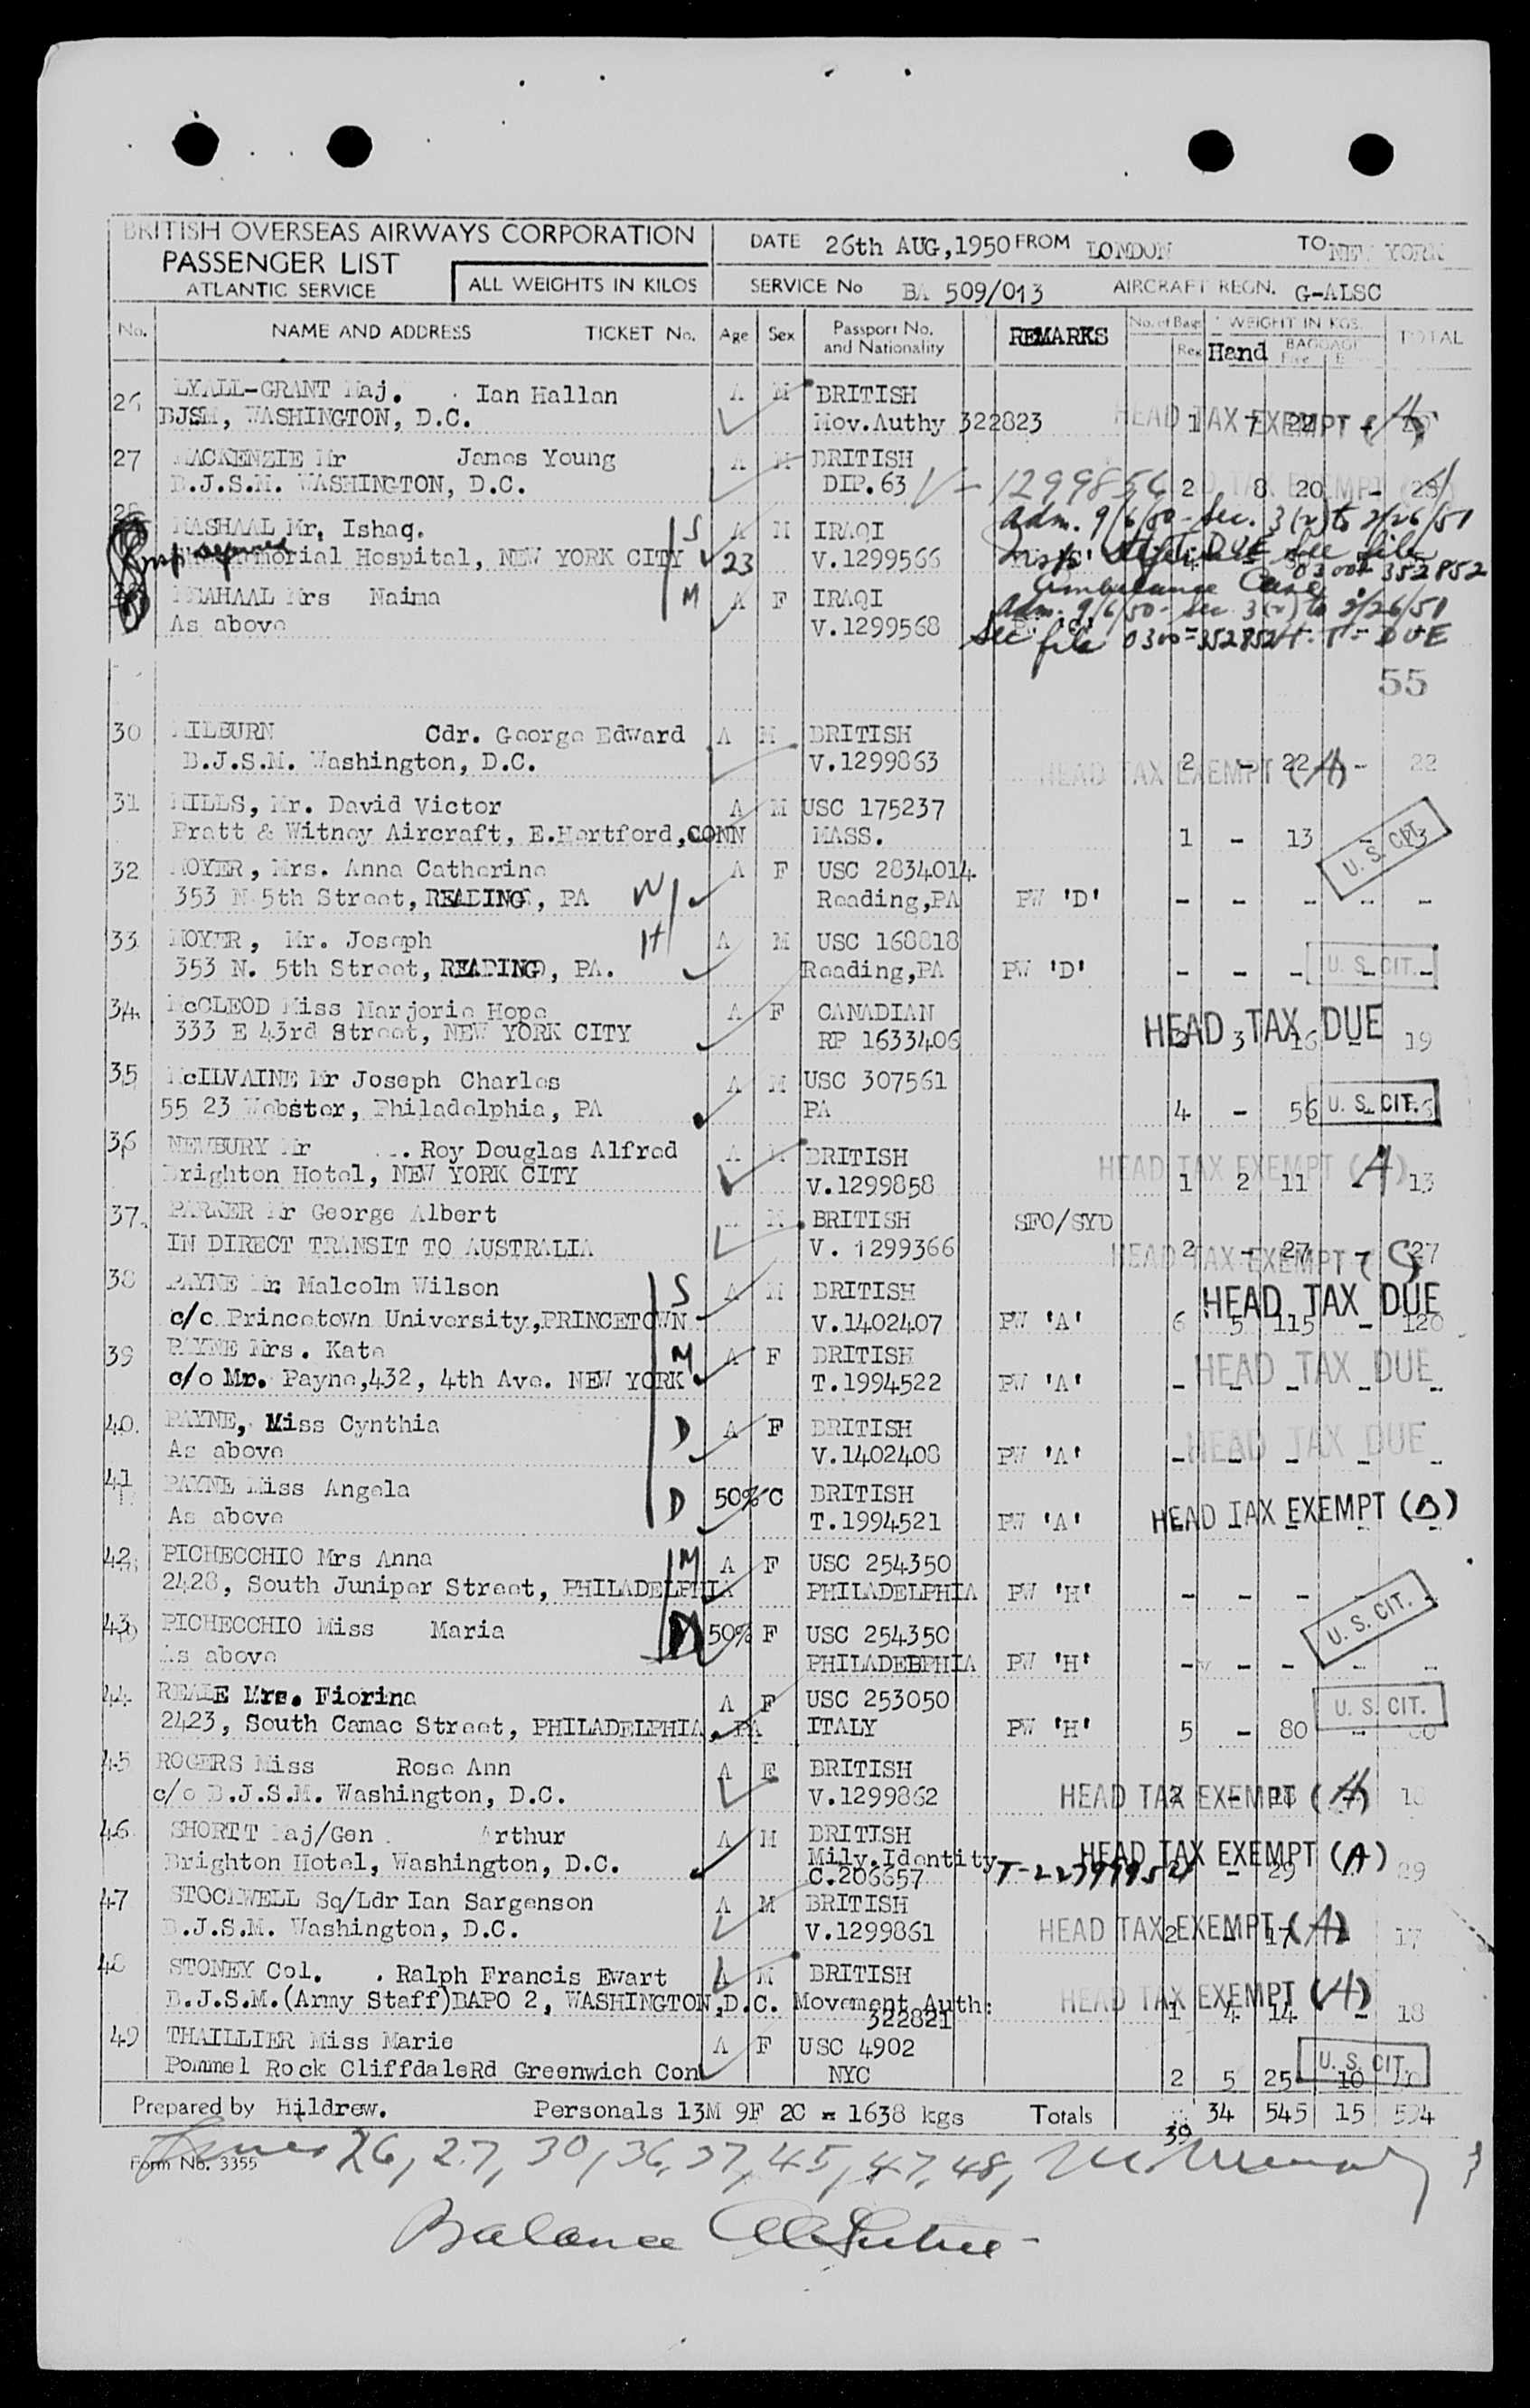 BRITISH OVERSEAS AIRWAYS CORPORATION
PASSENGER LIST
ATLANTIC SERVICE
ALL WEIGHTS IN KILOS
DATE 26th AUG,1950 FROM LONDON TO NEW YORK
SERVICE No BA 509/013 AIRCRAFT REGN. G-ALSC
No. NAME AND ADDRESS TICKET No. Age Sex Passport No. and Nationality REMARKS No. of Bags Reg Hand WEIGHT IN KGS. BAGGAGE Free TOTAL
26 LYALL-GRANT Maj. Ian Hallan A M BRITISH
BJSM, WASHINGTON, D.C. Mov.Authy 322823 HEAD TAX EXEMPT (A) 1 7 22 -
27 MACKENZIE Mr James Young A M BRITISH
B.J.S.M. WASHINGTON, D.C. DIP.63 V-1299856 2 8 20 - 28
28 MASHAAL Mr, Ishaq. S A M IRAQI adm. 9/6/50 - Sec. 3(2) to 2/26/51
Memorial Hospital, NEW YORK CITY 23 V.1299566 DUE See file
0300-352852
Ambulance Case
MEAHAAL Mrs Naima M A F IRAQI adm. 9/6/50 - Sec 3(2) to 2/26/51
As above V.1299568 See file 0300-352852 H.T. DUE
55
30 MILBURN Cdr. George Edward A M BRITISH
B.J.S.M. Washington, D.C. V.1299863 HEAD TAX EXEMPT (A) 2 - 22 - 22
31 MILLS, Mr. David Victor A M USC 175237
Pratt & Witney Aircraft, E.Hartford,CONN MASS. 1 - 13 - 13 U. S. CIT.
32 MOYER, Mrs. Anna Catherine A F USC 2834014
353 N 5th Street, READING, PA W Reading,PA PW 'D' - - - - -
33 MOYER, Mr. Joseph H A M USC 168818
353 N. 5th Street, READING, PA. Reading,PA PW 'D' - - - - - U. S. CIT.
34. McCLEOD Miss Marjorie Hope A F CANADIAN
333 E 43rd Street, NEW YORK CITY RP 1633406 HEAD TAX DUE 2 3 16 - 19
35 McILVAINE Mr Joseph Charles A M USC 307561
55 23 Webster, Philadelphia, PA PA 4 - 56 U. S. CIT.
36 NEWBURY Mr Roy Douglas Alfred A M BRITISH
Brighton Hotel, NEW YORK CITY V.1299858 HEAD TAX EXEMPT (A) 1 2 11 - 13
37. PARKER Mr George Albert M BRITISH SFO/SYD
IN DIRECT TRANSIT TO AUSTRALIA V. 1299366 HEAD TAX EXEMPT 2 - 27 - 27
38 PAYNE Mr. Malcolm Wilson S A M BRITISH HEAD TAX DUE
c/c Princetown University,PRINCETOWN V.1402407 PW 'A' 6 5 115 - 120
39 PAYNE Mrs. Kate M A F BRITISH HEAD TAX DUE
c/o Mr. Payne,432, 4th Ave. NEW YORK T.1994522 PW 'A' - - - - -
40. PAYNE, Miss Cynthia D A F BRITISH HEAD TAX DUE
As above V.1402408 PW 'A' - - - - -
41 PAYNE Miss Angela D 50% C BRITISH
As above T.1994521 PW 'A' HEAD TAX EXEMPT (B)
42 PICHECCHIO Mrs Anna M A F USC 254350
2428, South Juniper Street, PHILADELPHIA PHILADELPHIA PW 'H' - - - U. S. CIT.
43 PICHECCHIO Miss Maria 50% F USC 254350
As above PHILADEBPHIA PW 'H' - - - - -
44 REALE Mrs. Fiorina A F USC 253050 U. S. CIT.
2423, South Camac Street, PHILADELPHIA, PA ITALY PW 'H' 5 - 80 - 80
45 ROGERS Miss Rose Ann A F BRITISH
c/o B.J.S.M. Washington, D.C. V.1299862 HEAD TAX EXEMPT (A) 2 - 18 18
46 SHORTT Maj/Gen Arthur A M BRITISH
Brighton Hotel, Washington, D.C. Mily.Identity C.206657 HEAD TAX EXEMPT (A) - 29 29
47 STOCKWELL Sq/Ldr Ian Sargenson A M BRITISH
B.J.S.M. Washington, D.C. V.1299861 HEAD TAX EXEMPT (A) 2 - 17 17
48 STONEY Col. Ralph Francis Ewart A M BRITISH
B.J.S.M.(Army Staff)BAPO 2, WASHINGTON,D.C. Movement Auth: 322821 HEAD TAX EXEMPT (A) 1 4 14 - 18
49 THAILLIER Miss Marie A F USC 4902
Pommel Rock CliffdaleRd Greenwich Con NYC 2 5 25 10 U. S. CIT.
Prepared by Hildrew. Personals 13M 9F 2C = 1638 kgs Totals 39 34 545 15 594
Form No. 3355
Lines 26, 27, 30, 36, 37, 45, 47, 48,
Balance